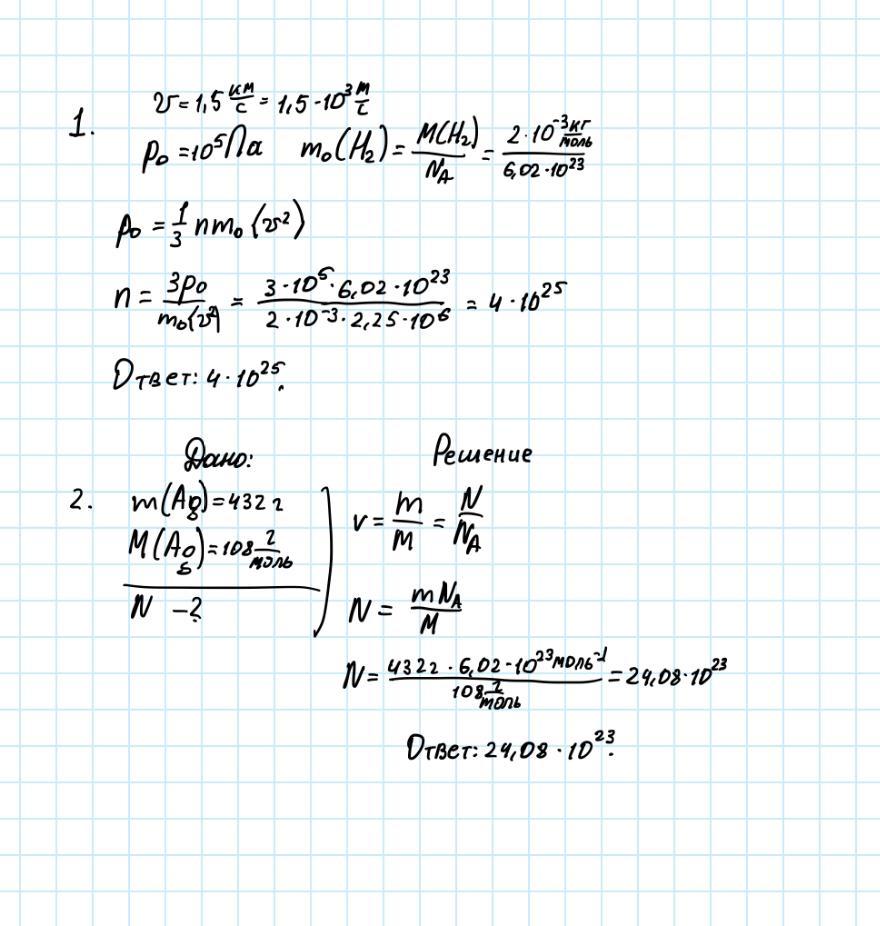 1. v = 1,5 км/с = 1,5 · 10³ м/с
p₀ = 10⁵ Па m₀(H₂) = M(H₂)/N_A = 2 · 10⁻³ кг/моль / 6,02 · 10²³
p₀ = 1/3 n m₀ ⟨v²⟩
n = 3p₀/m₀⟨v²⟩ = 3 · 10⁵ · 6,02 · 10²³ / 2 · 10⁻³ · 2,25 · 10⁶ = 4 · 10²⁵
Ответ: 4 · 10²⁵.
Дано: Решение
2. m(Ag) = 432 г
M(Ag) = 108 г/моль
N – ?
ν = m/M = N/N_A
N = mN_A/M
N = 432 г · 6,02 · 10²³ моль⁻¹ / 108 г/моль = 24,08 · 10²³
Ответ: 24,08 · 10²³.